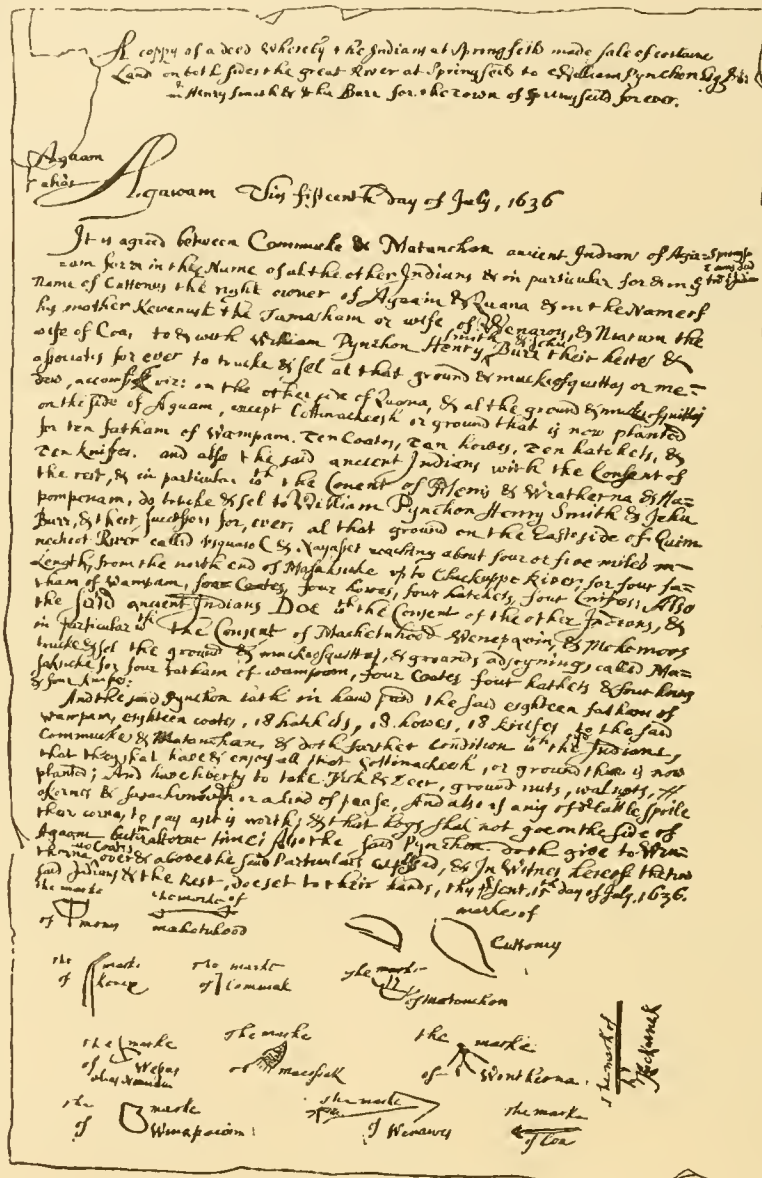 A coppy of a deed Whereby the Indians at Springfeild made sale of certaine
Land on both sides the great River at Springfeild to William Pynchon Esq &
mr Henry Smith & Jehu Burr for the town of Springfeild for ever.
Agaam
alias
Agawam This fifteenth day of July, 1636
It is agreed between Commucke & Matanchan ancient Indians of Aga=
=am for & in the Name of al the other Indians & in particular for & in ye
Name of Cuttonus the right owner of Agaam & Quana & in the Name of
his mother Kewenusk the Tamasham or wife of Wenawis, & Niarum the
wife of Coa, to & with William Pynchon Henry Smith & Jehu Burr their heires &
associates for ever to trucke & sel al that ground & muckeosquittaj or me=
dow, accomsick viz: on the other side of Quana, & al the ground & muckeosquittaj
on the side of Agaam, except Cottinackeesh or ground that is now planted
for ten fatham of Wampam, Ten Coates, Ten howes, Ten hatchets, &
Ten knifes. and also the said ancient Indians with the Consent of
the rest, & in particular wth the Consent of Menis & Wrutherna & Na=
pompenam, do trucke & sel to William Pynchon Henry Smith & Jehu
Burr, & their successors for, ever, al that ground on the East side of Quin
necticot River called Usquaiok & Nayasset reaching about four or five miles in
Length, from the north end of Masaksicke up to Chickuppe River, for four fa=
tham of Wampam, four Coates, four howes, four hatchets, four knifes: Also
the said ancient Indians Doe wth the Consent of the other Indians, &
in particular wth the Consent of Machetuhood Wenepawin, & Mohemoos
trucke & sel the ground & muckeosquittaj, & grounds adjoyning, called Ma=
saksicke for four fatham of wampam, four Coates four hatchets & four howes
& four knifes:
And the said Pynchon hath in hand paid the said eighteen fatham of
Wampam, eighteen coates, 18 hatchets, 18 howes, 18 knifes, to the said
Commucke & Matanchan, & doth further condition wth the Indians,
that they shal have & enjoy all that Cottinackeesh, or ground that is now
planted; And have liberty to take Fish & Deer, ground nuts, walnuts,
akornes & or a kind of pease, And also if any of or cattle spoile
their corne, to pay as it is worth; & that hogs shal not goe on the side of
Agaam but in akorne time: Also the said Pynchon doth give to Wru=
therna two Coates over & above the said Particulars expressed, & In Witnes hereof the two
said Indians & the Rest, doe set to their hands, this present 15th day of July, 1636.
the marke
of menis
the marke of
machetuhood
marke of
Cuttonus
the marke
of
the marke
of Commuck
the marke
of matanchan
the marke
of
the marke
of
the marke
of Wrutherna
the mark of
the marke
of Winapawin
the marke
of Wenawis
the marke
of Coa